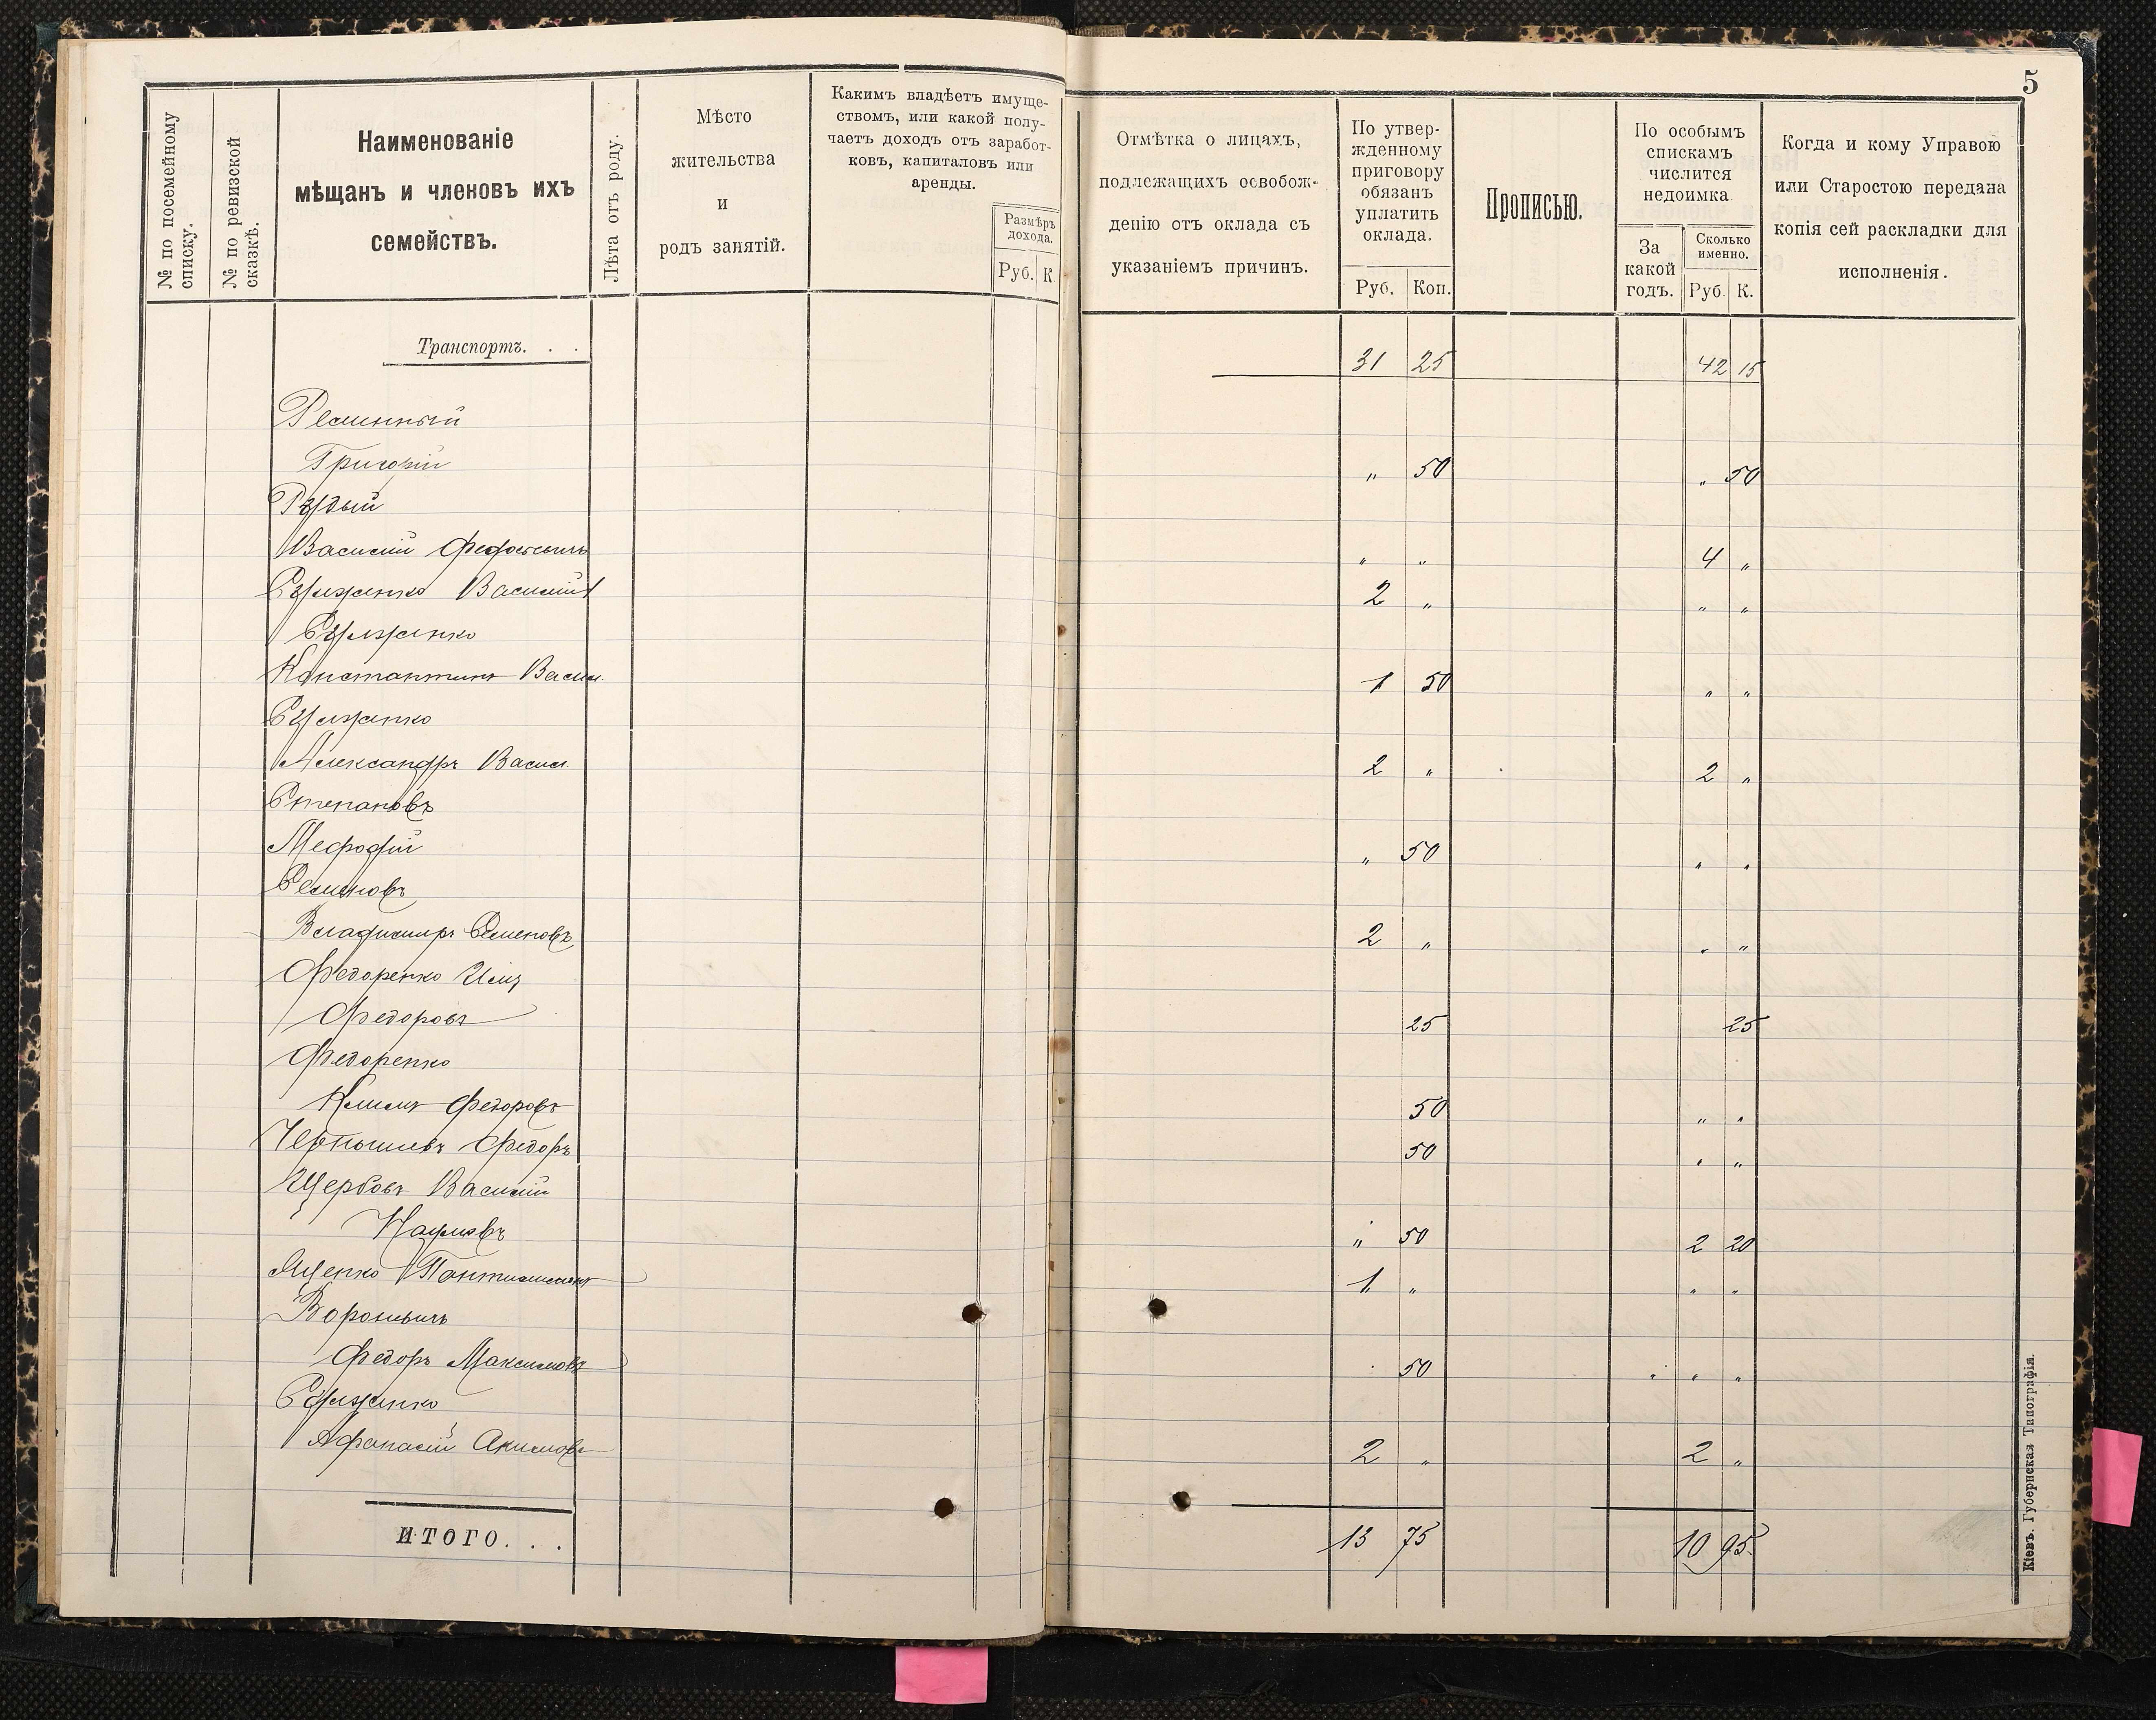 5
№ по посемейному
списку.
№ по ревизской
сказкѣ.
Наименованіе
мѣщанъ и членовъ ихъ
семействъ.
Лѣта отъ роду.
Мѣсто
жительства
и
родъ занятій.
Какимъ владѣетъ имуще-
ствомъ, или какой полу-
чаетъ доходъ отъ заработ-
ковъ, капиталовъ или
аренды.
Размѣръ
дохода.
Руб. К.
Отмѣтка о лицахъ,
подлежащихъ освобож-
денію отъ оклада съ
указаніемъ причинъ.
По утвер-
жденному
приговору
обязанъ
уплатить
оклада.
Руб. Коп.
Прописью.
По особымъ
спискамъ
числится
недоимка.
За
какой
годъ.
Сколько
именно.
Руб. К.
Когда и кому Управою
или Старостою передана
копія сей раскладки для
исполненія.
Транспортъ. . . 31 25 42 15
Григорій „ 50 „ 50
Рудый
Василій „ „ 4 „
Василій 2 „ „ „
Константинъ Васил. 1 50 „ „
Александръ Васил. 2 „ 2 „
Степановъ
Мефодій „ 50 „ „
Семеновъ
Владимиръ Семеновъ 2 „ „ „
Федоренко
Федоровъ 25 25
Федоренко
Климъ Федоровъ 50 „ „
Чернышевъ Федоръ 50 „ „
Щербовъ Василій
Наумовъ „ 50 2 20
Яценко 1 „ „ „
Федоръ Максимовъ 50 „ „ „
Афанасій Акимовъ 2 „ 2 „
ИТОГО. . . 13 75 10 95
Кіевъ. Губернская Типографія.